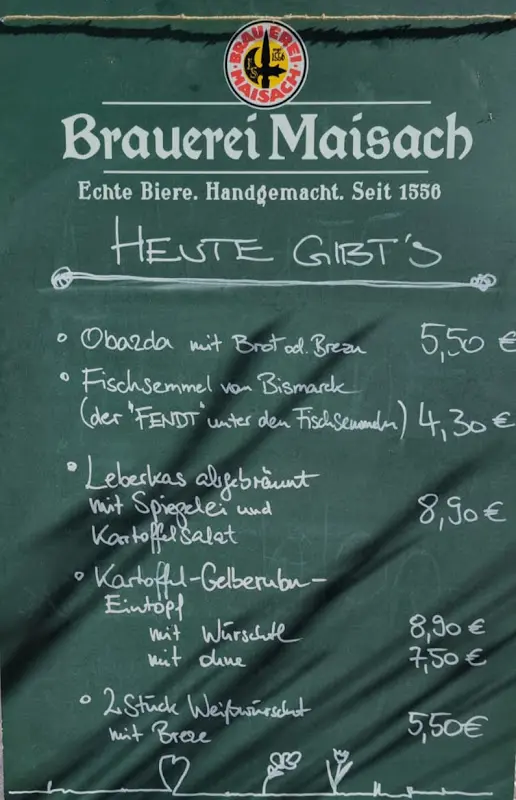 BRAUEREI
MAISACH
Brauerei Maisach
Echte Biere. Handgemacht. Seit 1556
HEUTE GIBT'S
Obazda mit Brot od. Brezn 5,50 €
Fischsemmel von Bismarck
(der "FENDT" unter den Fischsemmeln) 4,30 €
Leberkas abgebräunt
mit Spiegelei und 8,90 €
Kartoffelsalat
Kartoffel-Gelberubn-
Eintopf
mit Würschtl 8,90 €
mit ohne 7,50 €
2 Stück Weißwürscht 5,50 €
mit Breze